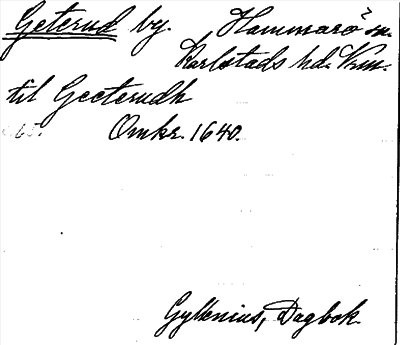 Geterud by. Hammarö sn.
Karlstads hd. Vrm.
til Geeterudh
Omkr. 1640.
Gyllenius, Dagbok.